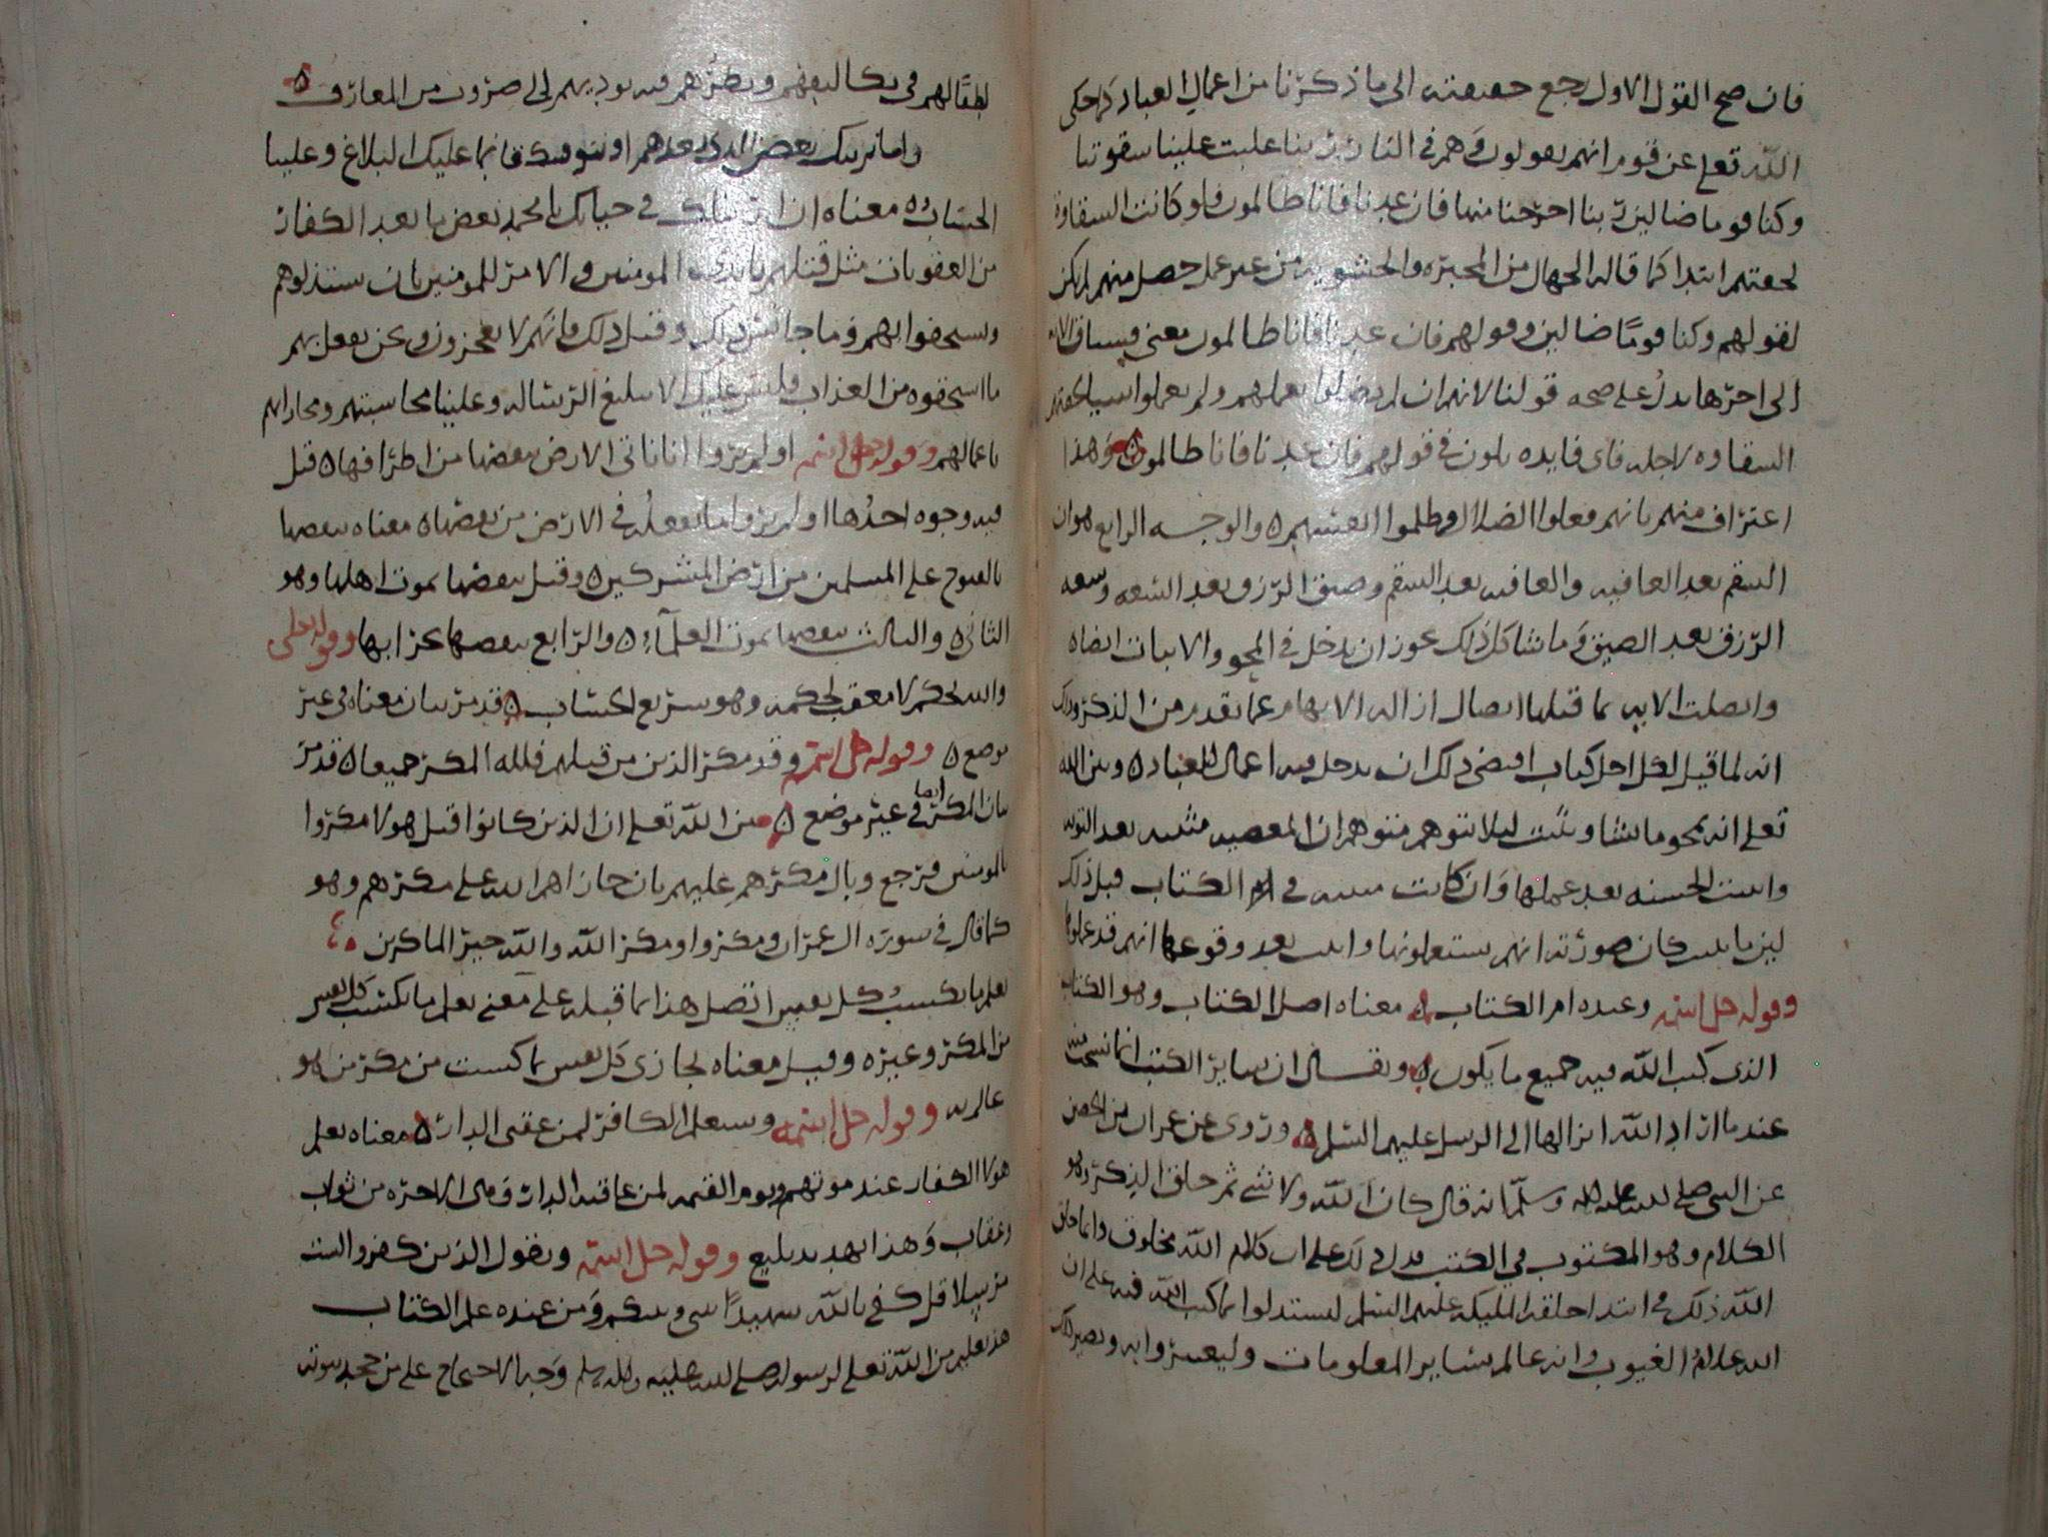 فان صح القول الاول رجع حقيقته الى ما ذكرنا من اعمال العباد كما حكى
الله تعلى عن قوم انهم يقولون وهم في النار ربنا غلبت علينا شقوتنا
وكنا قوما ضالين ربنا اخرجنا منها فان عدنا فانا ظالمون فلو كانت الشقاوة
لحقتهم ابتدا كما قاله الجهال من المجبره والحشويه من غير عمل حصل منهم لم يكن
لقولهم وكنا قومًا ضالين وقولهم فان عدنا فانا ظالمون معنى فسياق الايه
الى اخرها يدلُ على صحه قولنا لانهم ان لم يضلوا بعملهم ولم يعملوا سيا لحقتهم
الشقاوه لاجله فاى فايده يكون في قولهم فان عدنا فانا ظالمون وهذا
اعتراف منهم بانهم فعلوا الضلال وظلموا انفسهم ه والوجه الرابع هو ان
السقم بعد العافيه والعافيه بعد السقم وضيق الرزق بعد السعه وسعه
الرزق بعد الضيق وما شاكل ذلك يجوز ان يدخل في المحو والاثبات ايضا ه
واتصلت الايه بما قبلها اتصال ازاله الايهام عما تقدم من الذكر وذلك
انه لما قيل لكل اجل كتاب اقتضى ذلك ان يدخل فيه اعمال العباد ه وبين الله
تعلى انه يمحو ما يشا ويثبت ليلا يتوهم متوهم ان المعصيه مثبته بعد التوبه
واثبت الحسنه بعد عملها وان كانت مثبته في ام الكتاب قبل ذلك
لين ما يثبت كان صورته انهم ستعملونها واثبت بعد وقوعها انهم قد عملوها
وقوله جل اسمه وعنده ام الكتاب ه معناه اصل الكتاب وهو الكتاب
الذى كتب الله فيه جميع ما يكون ه ويقال ان ساير الكتب انما نسخت منه
عند ما اراد الله انزالها الى الرسل عليهم السلم ه وروى عن عمران بن الحصين
عن النبى صلى الله عليه وسلم انه قال كان الله ولا شي ثم خلق الذكر وهو
الكلام وهو المكتوب في الكتب فدل ذلك على ان كلام الله مخلوق وانما خلق
الله ذلك في ابتدا خلقه المليكه عليهم السلم ليستدلوا بما كتب الله فيه على ان
الله علام الغيوب وانه عالم بساير المعلومات وليعتبروا به ويصير ذلك
لطفًا لهم في تكاليفهم ونظرهم فيه يوديهم الى ضروب من المعارف ه
واما نرينك بعض الذى نعدهم او نتوفينك فانما عليك البلاغ وعلينا
الحساب ه معناه ان اريناك في حياتك يا محمد بعض ما نعد الكفار
من العقوبات مثل قتلهم بايدى المومنين والامر للمومنين بان ستذلوهم
ويستخفوا بهم وما جانس ذلك وقتل ذلك فانهم لا يعجزون ونحن نفعل بهم
ما استحقوه من العذاب فليس عليك الا تبليغ الرساله وعلينا محاسبتهم ومجازاتهم
باعمالهم وقوله جل اسمه اولم يروا انا ناتى الارض ننقصها من اطرافها ه قيل
فيه وجوه احدُها اولم يروا ما نفعله في الارض من نقصها ه معناه ننقصها
بالفتوح على المسلمين من ارض المشركين ه وقيل ننقصها بموت اهلها وهو
الثانى ه والثالث ننقصها بموت العلمآء ه والرابع ننقصها بخرابها وقوله تعلى
والله يحكم لا معقب لحكمه وهو سريع الحساب ه قد مر بيان معناه في غير
موضع ه وقوله جل اسمه وقد مكر الذين من قبلهم فلله المكر جميعا ه قد مر
بيان المكر ايضا في غير موضع ه بين الله تعلى ان الذين كانوا قبل هولا مكروا
بالمومنين فرجع وبال مكرهم عليهم بان جازاهم الله على مكرهم وهو
كما قال في سورة ال عمران ومكروا ومكر الله والله خير الماكرين ه
يعلم ما تكسبُ كل نفس اتصل هذا بما قبله على معنى يعلم ما تكسب كل نفس
من المكر وغيره وقيل معناه يجازى كل نفس بما كسبت من مكر من هو
عالم به وقوله جل اسمه وسيعلم الكافر لمن عقبى الدار ه معناه يعلم
هولا الكفار عند موتهم ويوم القيمه لمن عاقبه الدار في الاخره من ثواب
وعقاب وهذا تهديد بليغ وقوله جل اسمه ويقول الذين كفروا لست
مرسلا قل كفى بالله شهيدًا بينى وبينكم ومن عنده علم الكتاب
هذا تعليم من الله تعلى لرسوله صلى الله عليه واله وسلم وجه الاحتجاج على من جحد نبوته